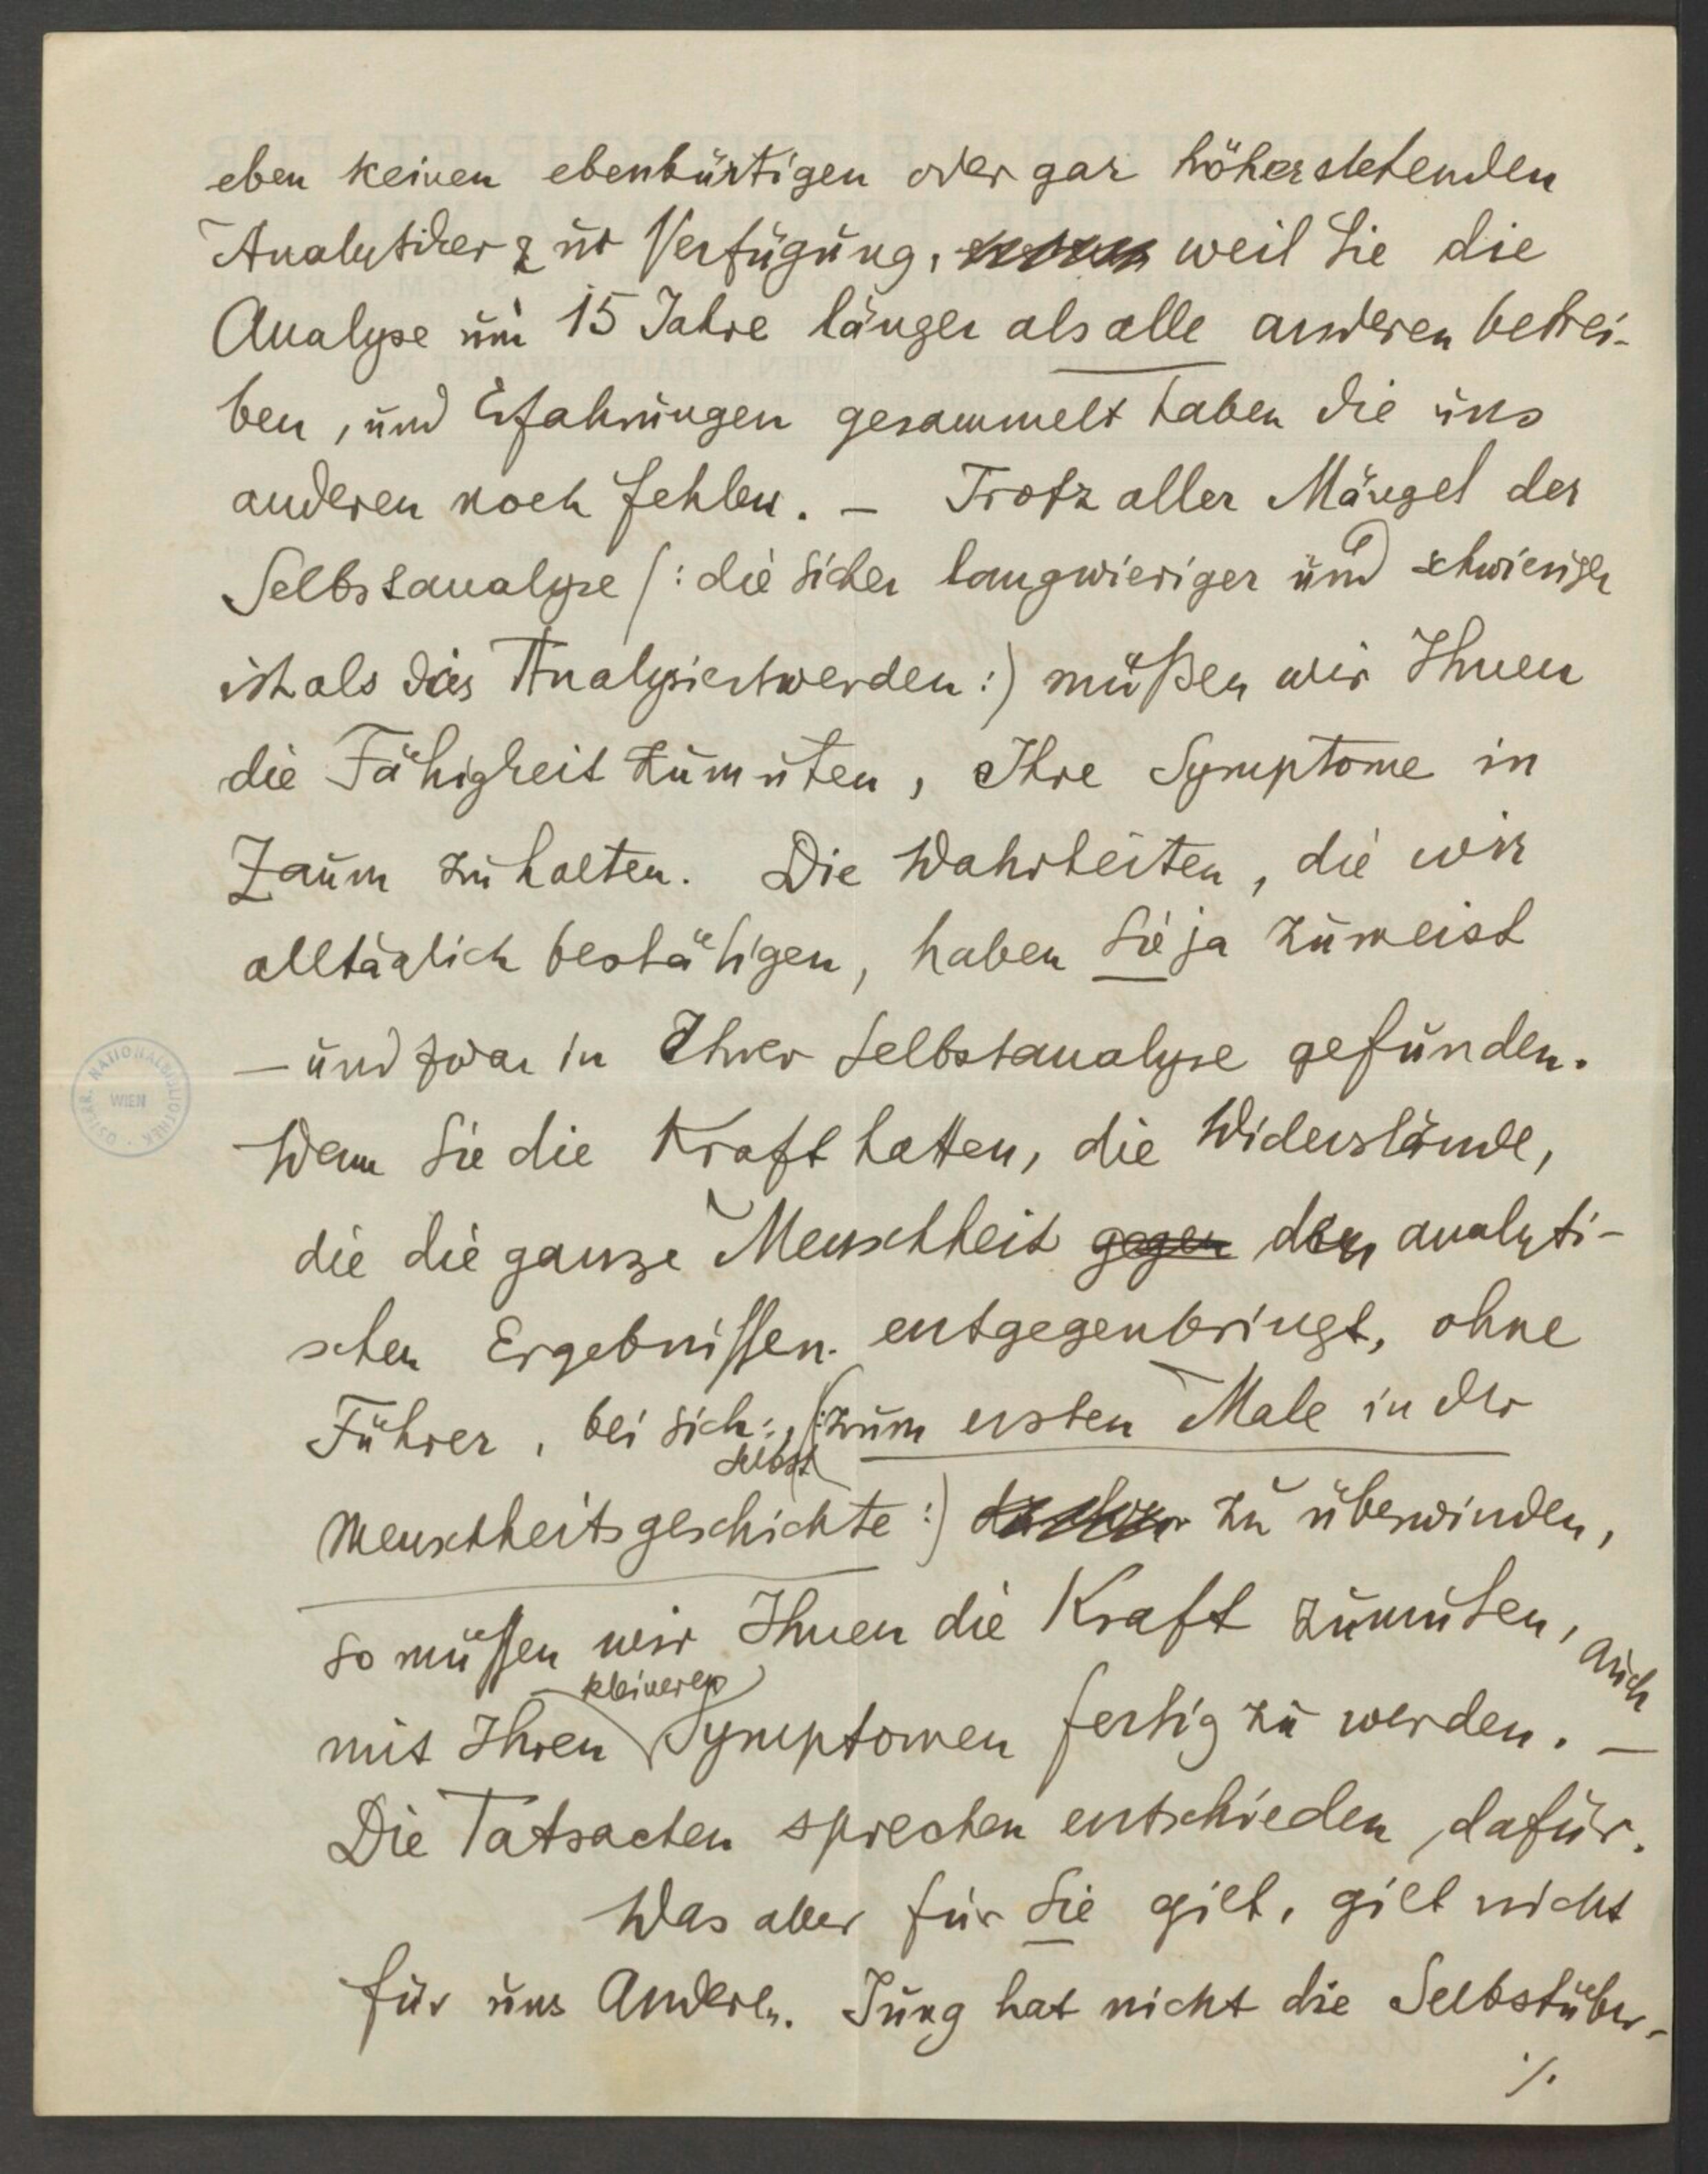 eben keinen ebenbürtigen oder gar höherstehenden
Analytiker zur Verfügung, weil Sie die
Analyse um 15 Jahre länger als alle anderen betrei-
ben, und Erfahrungen gesammelt haben die uns
anderen noch fehlen. – Trotz aller Mängel der
Selbstanalyse (: die sicher langwieriger und schwieriger
ist als das Analysiertwerden :) müßen wir Ihnen
die Fähigkeit zumuten, Ihre Symptome in
Zaum zu halten. Die Wahrheiten, die wir
alltäglich bestätigen, haben Sie ja zumeist
– und zwar in Ihrer Selbstanalyse gefunden.
Wenn Sie die Kraft hatten, die Widerstände,
die die ganze Menschheit gegen den analyti-
schen Ergebnissen entgegenbringt, ohne
Führer, bei sich selbst (: zum ersten Male in der
Menschheitsgeschichte :) zu überwinden,
so müssen wir Ihnen die Kraft zumuten, auch
mit Ihren kleineren Symptomen fertig zu werden. –
Die Tatsachen sprechen entschieden dafür.
Was aber für Sie gilt, gilt nicht
für uns Andere. Jung hat nicht die Selbstüber-
./.
ÖSTERR. NATIONALBIBLIOTHEK
WIEN